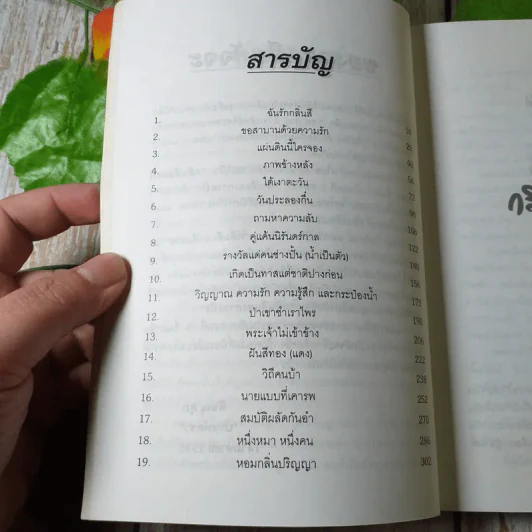 สารบัญ
1. ฉันรักกลิ่นสี
2. ขอสาบานด้วยความรัก 16
3. แผ่นดินนี้ใครจอง 28
4. ภาพข้างหลัง 40
5. ใต้เงาตะวัน 56
6. วันประลองกึ๋น 72
7. ถามหาความลับ 88
8. คู่แค้นนิรันดร์กาล 106
9. รางวัลแด่คนช่างปั้น (น้ำเป็นตัว) 122
10. เกิดเป็นทาสแต่ชาติปางก่อน 140
11. วิญญาณ ความรัก ความรู้สึก และกระป๋องน้ำ 156
12. ป่าเขาลำเราไพร 175
13. พระเจ้าไม่เข้าข้าง 190
14. ฝันสีทอง (แดง) 206
15. วิถีคนบ้า 222
16. นายแบบที่เคารพ 238
17. สมบัติผลัดกันอำ 252
18. หนึ่งหมา หนึ่งคน 270
19. หอมกลิ่นปริญญา 286
302